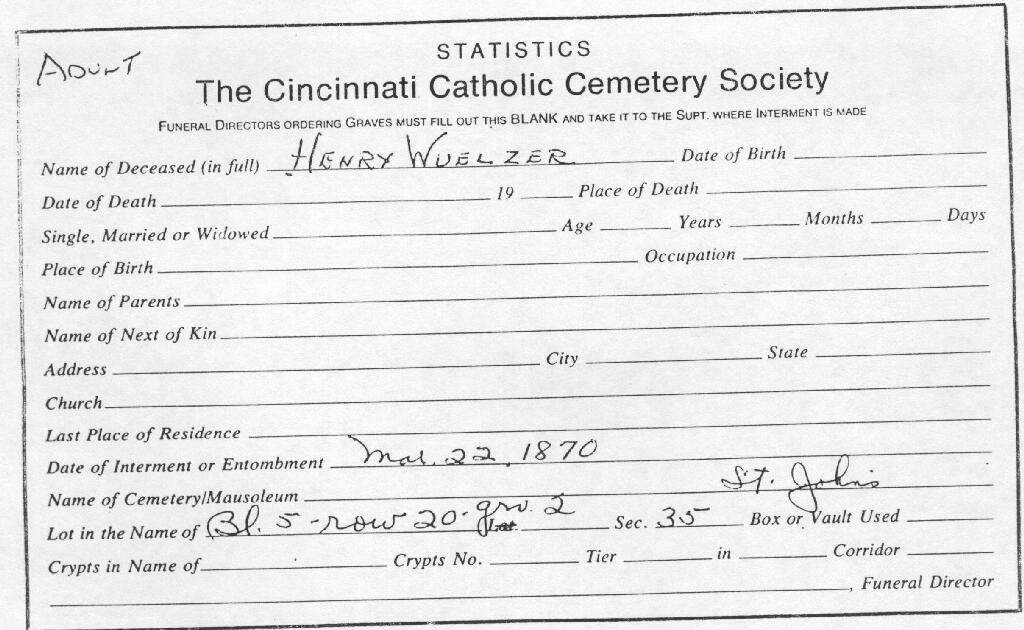 STATISTICS
ADULT
The Cincinnati Catholic Cemetery Society
FUNERAL DIRECTORS ORDERING GRAVES MUST FILL OUT THIS BLANK AND TAKE IT TO THE SUPT. WHERE INTERMENT IS MADE
Name of Deceased (in full) HENRY WUELZER Date of Birth
Date of Death 19 Place of Death
Single, Married or Widowed Age Years Months Days
Place of Birth Occupation
Name of Parents
Name of Next of Kin
Address City State
Church
Last Place of Residence
Date of Interment or Entombment Mar. 22, 1870
Name of Cemetery/Mausoleum St. John's
Lot in the Name of Bl. 5 - row 20 - grv. 2 Lot Sec. 35 Box or Vault Used
Crypts in Name of Crypts No. Tier in Corridor
, Funeral Director